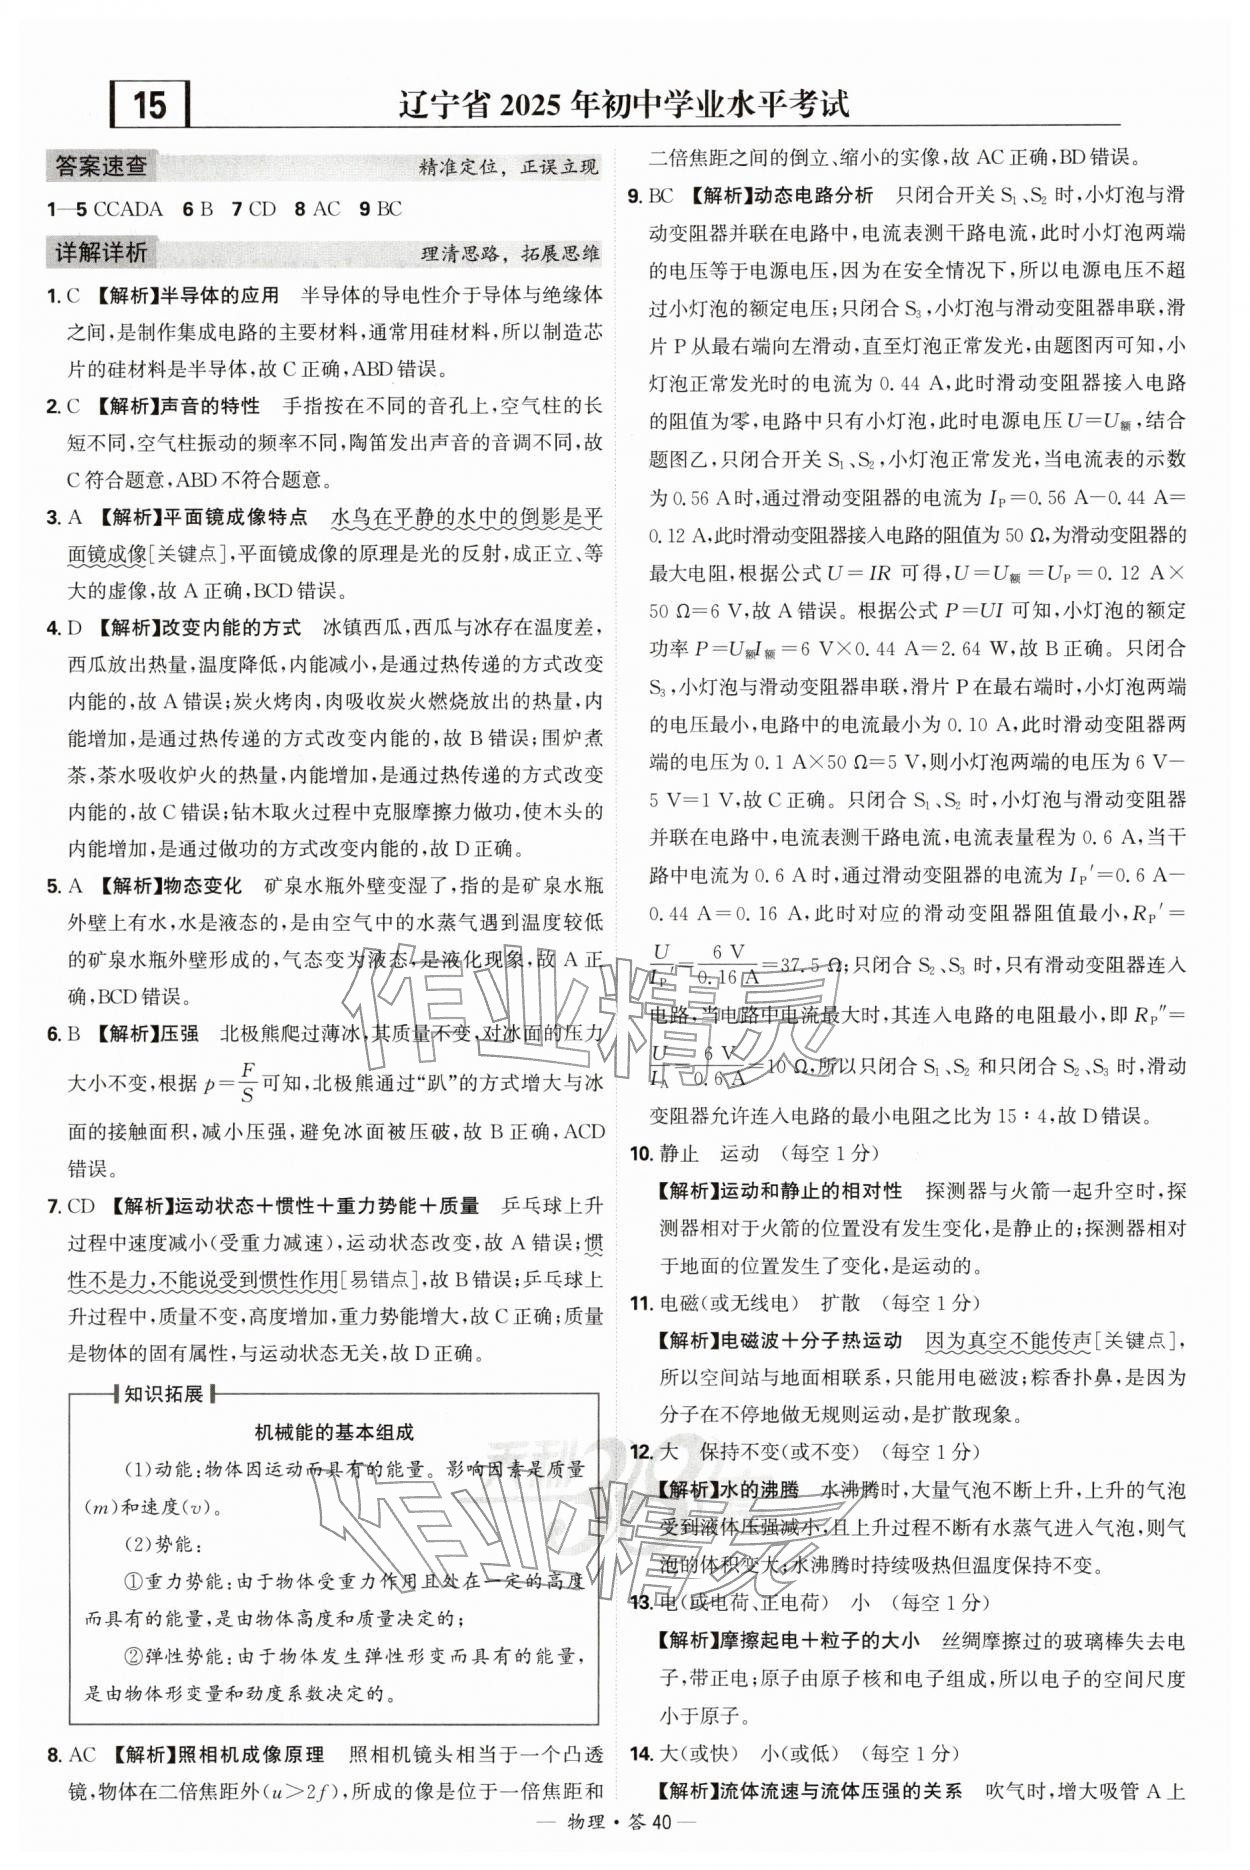 15
辽宁省 2025 年初中学业水平考试
答案速查
精准定位，正误立现
1—5 CCADA 6 B 7 CD 8 AC 9 BC
详解详析
理清思路，拓展思维
1. C 【解析】半导体的应用 半导体的导电性介于导体与绝缘体
之间,是制作集成电路的主要材料,通常用硅材料,所以制造芯
片的硅材料是半导体,故 C 正确,ABD 错误。
2. C 【解析】声音的特性 手指按在不同的音孔上,空气柱的长
短不同,空气柱振动的频率不同,陶笛发出声音的音调不同,故
C 符合题意,ABD 不符合题意。
3. A 【解析】平面镜成像特点 水鸟在平静的水中的倒影是平
面镜成像[关键点],平面镜成像的原理是光的反射,成正立、等
大的虚像,故 A 正确,BCD 错误。
4. D 【解析】改变内能的方式 冰镇西瓜,西瓜与冰存在温度差,
西瓜放出热量,温度降低,内能减小,是通过热传递的方式改变
内能的,故 A 错误;炭火烤肉,肉吸收炭火燃烧放出的热量,内
能增加,是通过热传递的方式改变内能的,故 B 错误;围炉煮
茶,茶水吸收炉火的热量,内能增加,是通过热传递的方式改变
内能的,故 C 错误;钻木取火过程中克服摩擦力做功,使木头的
内能增加,是通过做功的方式改变内能的,故 D 正确。
5. A 【解析】物态变化 矿泉水瓶外壁变湿了,指的是矿泉水瓶
外壁上有水,水是液态的,是由空气中的水蒸气遇到温度较低
的矿泉水瓶外壁形成的,气态变为液态,是液化现象,故 A 正
确,BCD 错误。
6. B 【解析】压强 北极熊爬过薄冰,其质量不变,对冰面的压力
大小不变,根据 p=F/S可知,北极熊通过“趴”的方式增大与冰
面的接触面积,减小压强,避免冰面被压破,故 B 正确,ACD
错误。
7. CD 【解析】运动状态+惯性+重力势能+质量 乒乓球上升
过程中速度减小(受重力减速),运动状态改变,故 A 错误;惯
性不是力,不能说受到惯性作用[易错点],故 B 错误;乒乓球上
升过程中,质量不变,高度增加,重力势能增大,故 C 正确;质量
是物体的固有属性,与运动状态无关,故 D 正确。
知识拓展
机械能的基本组成
(1)动能:物体因运动而具有的能量。影响因素是质量
(m)和速度(v)。
(2)势能:
①重力势能:由于物体受重力作用且处在一定的高度
而具有的能量,是由物体高度和质量决定的;
②弹性势能:由于物体发生弹性形变而具有的能量,
是由物体形变量和劲度系数决定的。
8. AC 【解析】照相机成像原理 照相机镜头相当于一个凸透
镜,物体在二倍焦距外(u>2f),所成的像是位于一倍焦距和
二倍焦距之间的倒立、缩小的实像,故 AC 正确,BD 错误。
9. BC 【解析】动态电路分析 只闭合开关 S₁、S₂ 时,小灯泡与滑
动变阻器并联在电路中,电流表测干路电流,此时小灯泡两端
的电压等于电源电压,因为在安全情况下,所以电源电压不超
过小灯泡的额定电压;只闭合 S₃,小灯泡与滑动变阻器串联,滑
片 P 从最右端向左滑动,直至灯泡正常发光,由题图丙可知,小
灯泡正常发光时的电流为 0.44 A,此时滑动变阻器接入电路
的阻值为零,电路中只有小灯泡,此时电源电压 U=U额,结合
题图乙,只闭合开关 S₁、S₂,小灯泡正常发光,当电流表的示数
为 0.56 A 时,通过滑动变阻器的电流为 I_P=0.56 A−0.44 A=
0.12 A,此时滑动变阻器接入电路的阻值为 50 Ω,为滑动变阻器的
最大电阻,根据公式 U=IR 可得,U=U额=U_P=0.12 A×
50 Ω=6 V,故 A 错误。根据公式 P=UI 可知,小灯泡的额定
功率 P=U额I额=6 V×0.44 A=2.64 W,故 B 正确。只闭合
S₃,小灯泡与滑动变阻器串联,滑片 P 在最右端时,小灯泡两端
的电压最小,电路中的电流最小为 0.10 A,此时滑动变阻器两
端的电压为 0.1 A×50 Ω=5 V,则小灯泡两端的电压为 6 V−
5 V=1 V,故 C 正确。只闭合 S₁、S₂ 时,小灯泡与滑动变阻器
并联在电路中,电流表测干路电流,电流表量程为 0.6 A,当干
路中电流为 0.6 A 时,通过滑动变阻器的电流为 I_P′=0.6 A−
0.44 A=0.16 A,此时对应的滑动变阻器阻值最小,R_P′=
U/I_P′=6 V/0.16 A=37.5 Ω;只闭合 S₂、S₃ 时,只有滑动变阻器连入
电路,当电路中电流最大时,其连入电路的电阻最小,即 R_P″=
U/I_A=6 V/0.6 A=10 Ω,所以只闭合 S₁、S₂ 和只闭合 S₂、S₃ 时,滑动
变阻器允许连入电路的最小电阻之比为 15∶4,故 D 错误。
10. 静止 运动 (每空 1 分)
【解析】运动和静止的相对性 探测器与火箭一起升空时,探
测器相对于火箭的位置没有发生变化,是静止的;探测器相对
于地面的位置发生了变化,是运动的。
11. 电磁(或无线电) 扩散 (每空 1 分)
【解析】电磁波+分子热运动 因为真空不能传声[关键点],
所以空间站与地面相联系,只能用电磁波;粽香扑鼻,是因为
分子在不停地做无规则运动,是扩散现象。
12. 大 保持不变(或不变) (每空 1 分)
【解析】水的沸腾 水沸腾时,大量气泡不断上升,上升的气泡
受到液体压强减小,且上升过程不断有水蒸气进入气泡,则气
泡的体积变大;水沸腾时持续吸热但温度保持不变。
13. 电(或电荷、正电荷) 小 (每空 1 分)
【解析】摩擦起电+粒子的大小 丝绸摩擦过的玻璃棒失去电
子,带正电;原子由原子核和电子组成,所以电子的空间尺度
小于原子。
14. 大(或快) 小(或低) (每空 1 分)
【解析】流体流速与流体压强的关系 吹气时,增大吸管 A 上
— 物理·答 40 —
作业精灵
作业精灵